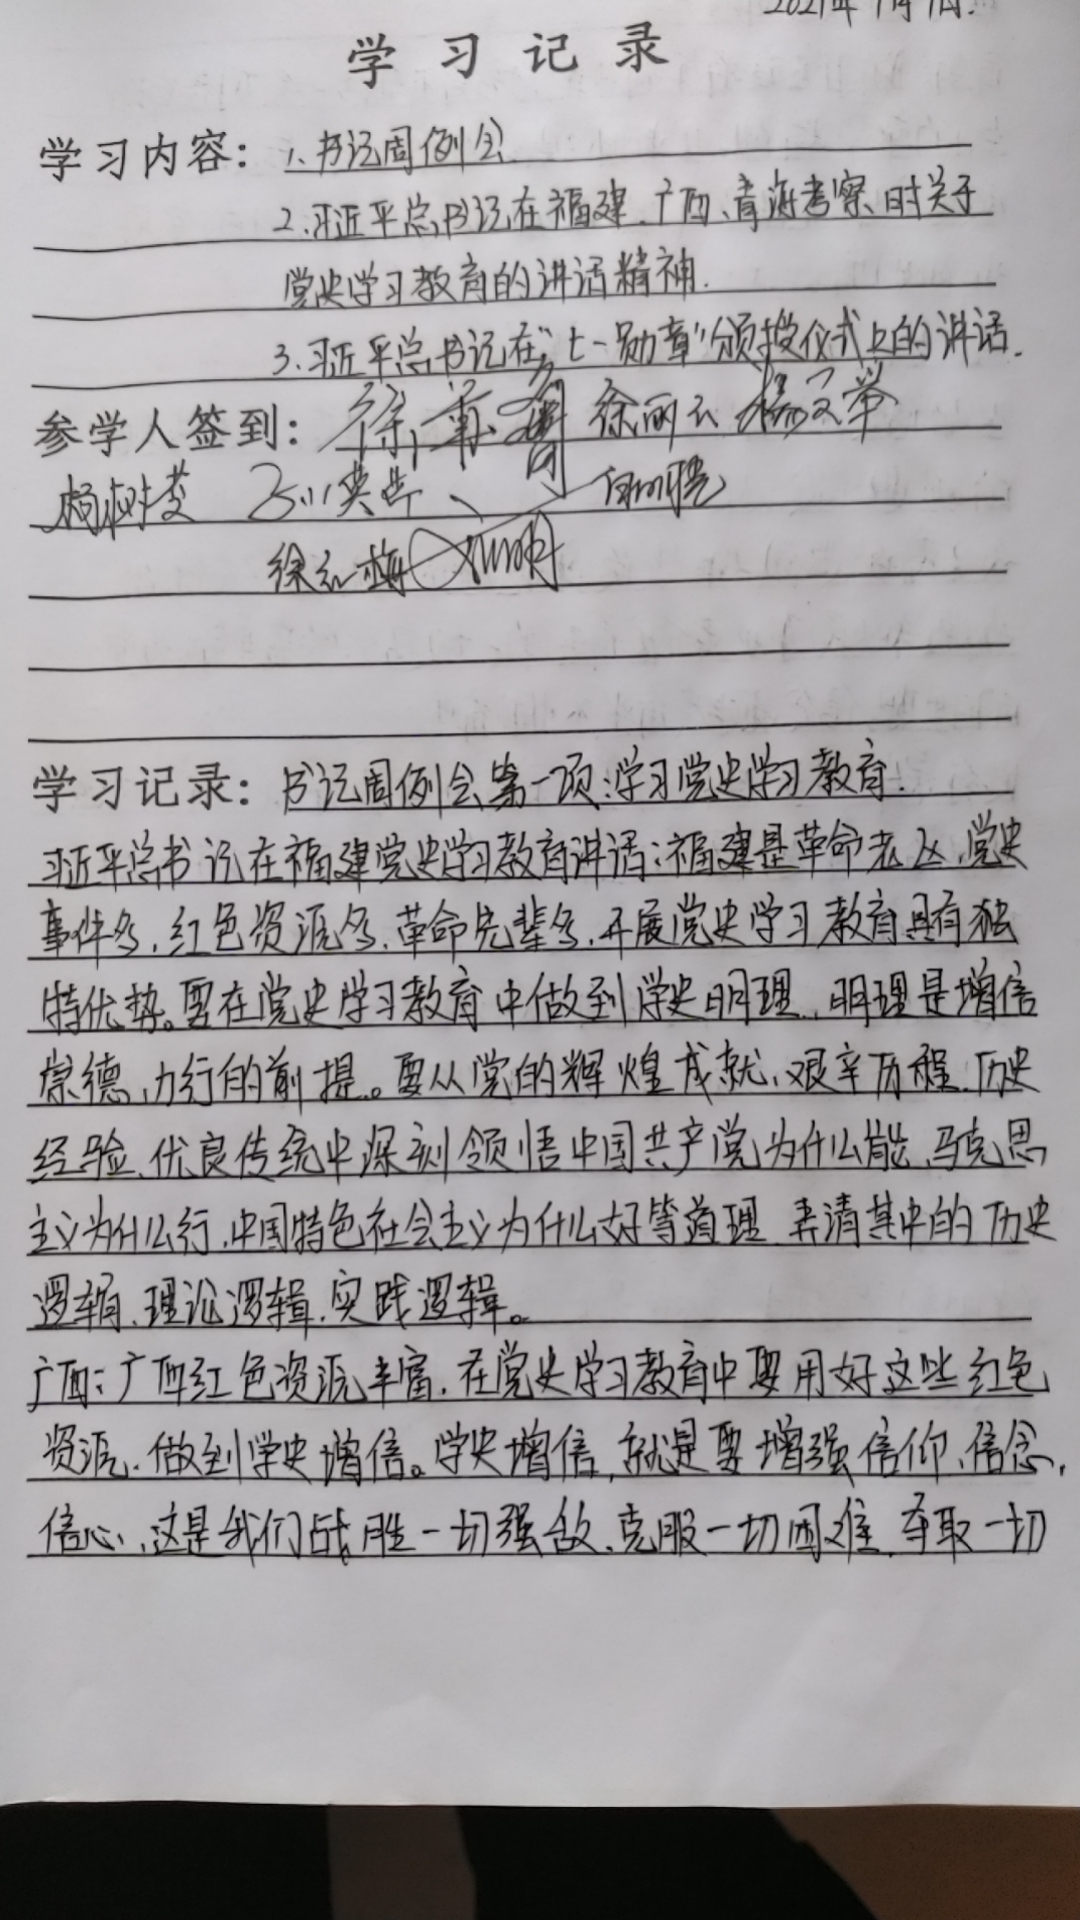 2021年7月1日.
学习记录
学习内容: 1.书记周例会
2.习近平总书记在福建、广西、青海考察时关于
党史学习教育的讲话精神.
3.习近平总书记在"七一勋章"颁授仪式上的讲话.
参学人签到: 徐丽云
徐红梅
学习记录: 书记周例会第一项:学习党史学习教育.
习近平总书记在福建党史学习教育讲话:福建是革命老区,党史
事件多,红色资源多,革命先辈多,开展党史学习教育具有独
特优势。要在党史学习教育中做到学史明理,明理是增信
崇德、力行的前提。要从党的辉煌成就、艰辛历程、历史
经验、优良传统中深刻领悟中国共产党为什么能、马克思
主义为什么行、中国特色社会主义为什么好等道理 弄清其中的历史
逻辑、理论逻辑、实践逻辑。
广西:广西红色资源丰富,在党史学习教育中要用好这些红色
资源,做到学史增信。学史增信,就是要增强信仰、信念、
信心,这是我们战胜一切强敌、克服一切困难、夺取一切